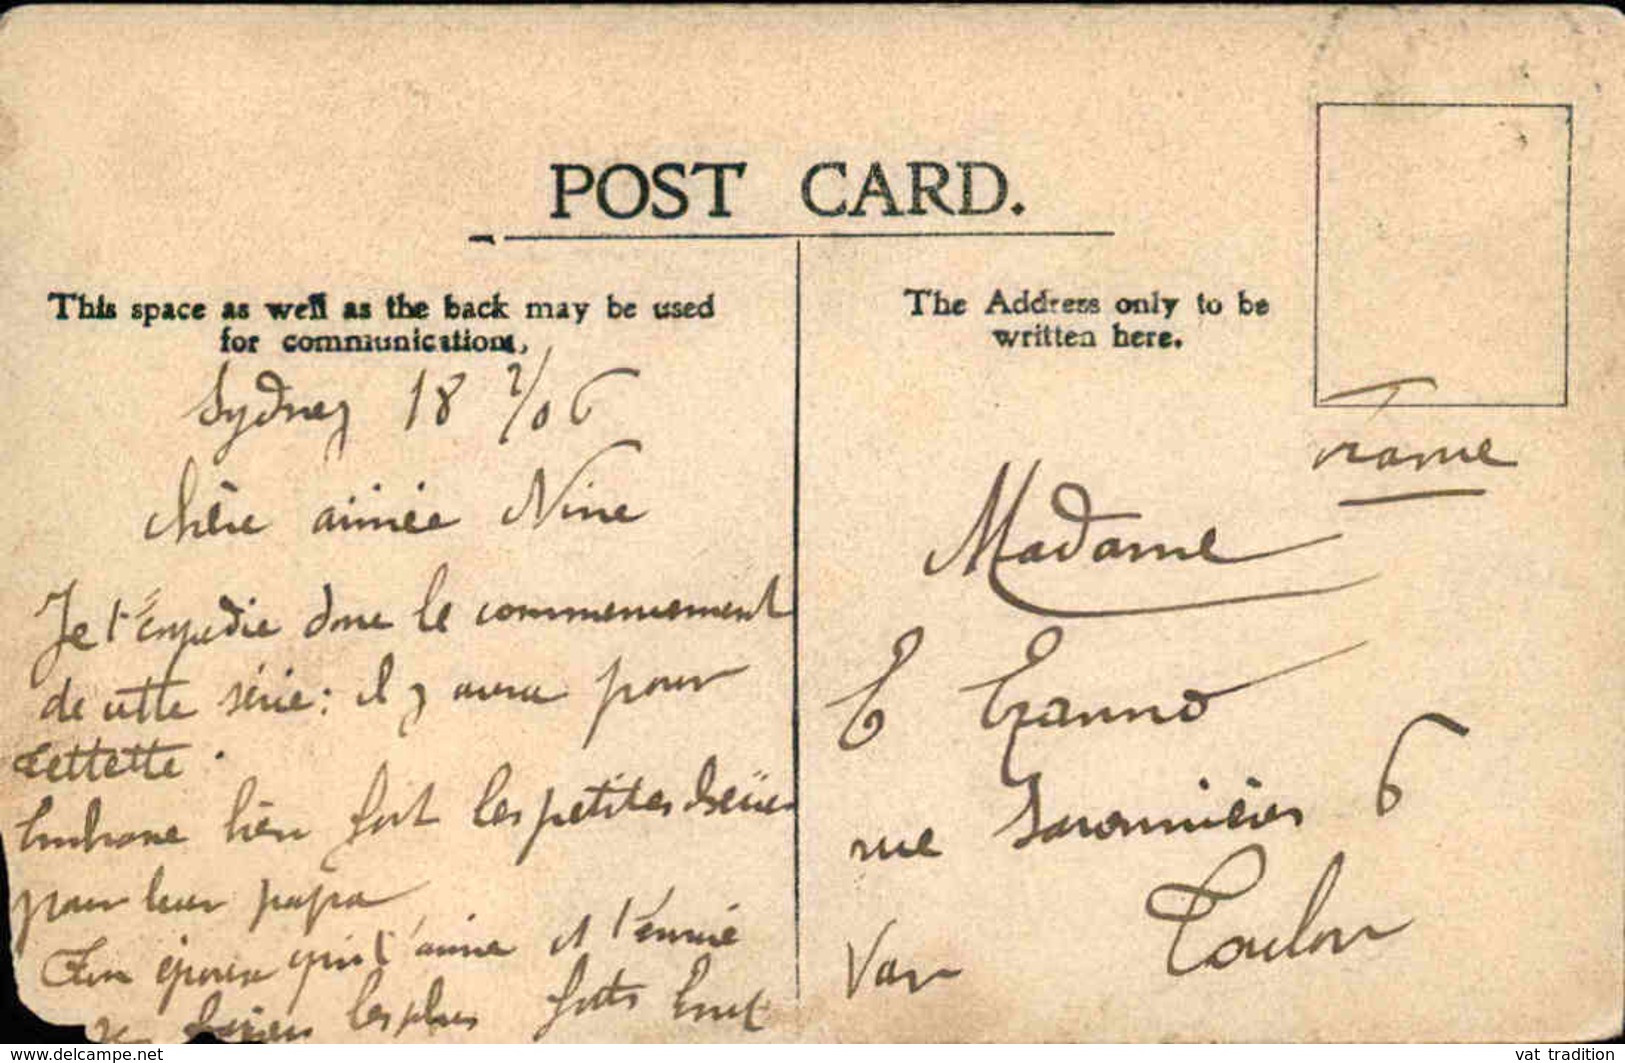 POST CARD.
This space as well as the back may be used
for communications,
The Address only to be
written here.
Sydney 18 2/06
chère aimée Nine
Je t'expédie donc le commencement
de cette série: il y aura pour
Embrasse bien fort les petites
pour leur papa
Ton époux qui t'aime et t'envoie
les plus forts
France
Madame
E
rue 6
Toulon
Var
www.delcampe.net
vat_tradition